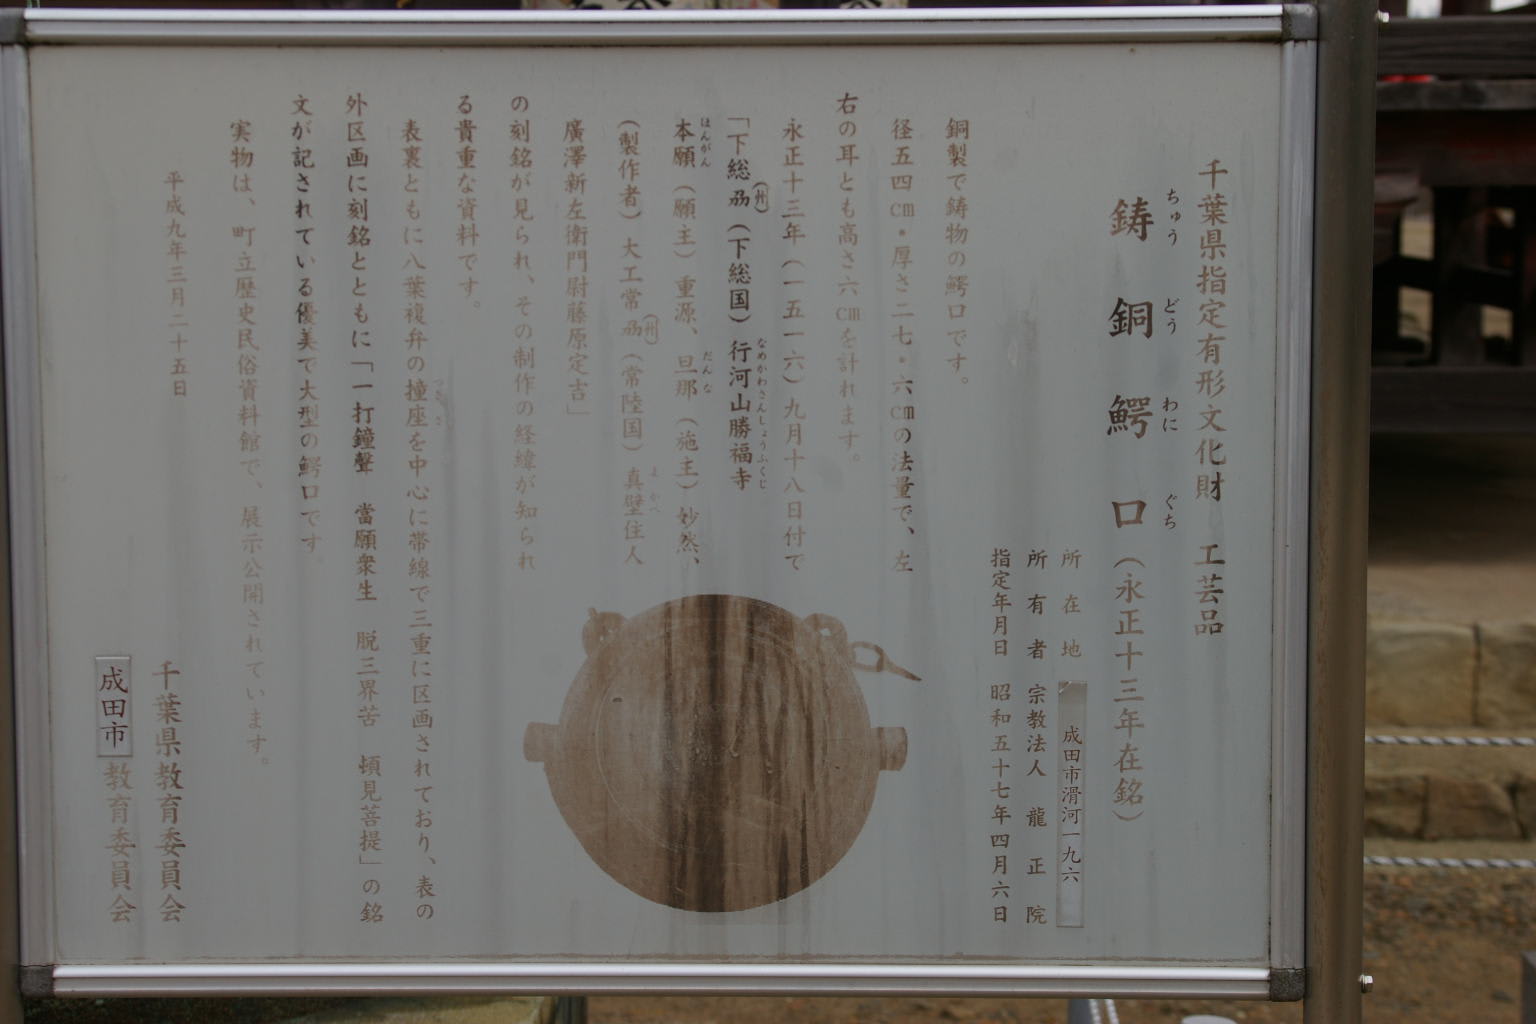 千葉県指定有形文化財　工芸品
鋳銅鰐口（永正十三年在銘）
ちゅうどうわにぐち
所在地　成田市滑河一九六
所有者　宗教法人　龍正院
指定年月日　昭和五十七年四月六日
銅製で鋳物の鰐口です。
径五四㎝・厚さ二七・六㎝の法量で、左
右の耳とも高さ六㎝を計れます。
永正十三年（一五一六）九月十八日付で
「下総刕（州）（下総国）行河山勝福寺
なめかわさんしょうふくじ
本願（願主）重源、旦那（施主）妙然、
ほんがん　だんな
（製作者）大工常刕（州）（常陸国）真壁住人
まかべ
廣澤新左衛門尉藤原定吉」
の刻銘が見られ、その制作の経緯が知られ
る貴重な資料です。
表裏ともに八葉複弁の撞座を中心に帯線で三重に区画されており、表の
つきざ
外区画に刻銘とともに「一打鐘聲　當願衆生　脱三界苦　頓見菩提」の銘
文が記されている優美で大型の鰐口です
実物は、町立歴史民俗資料館で、展示公開されています。
平成九年三月二十五日
千葉県教育委員会
成田市教育委員会